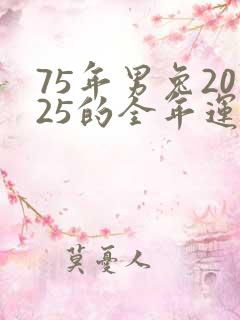 75年男兔20
25的全年運
莫憂人